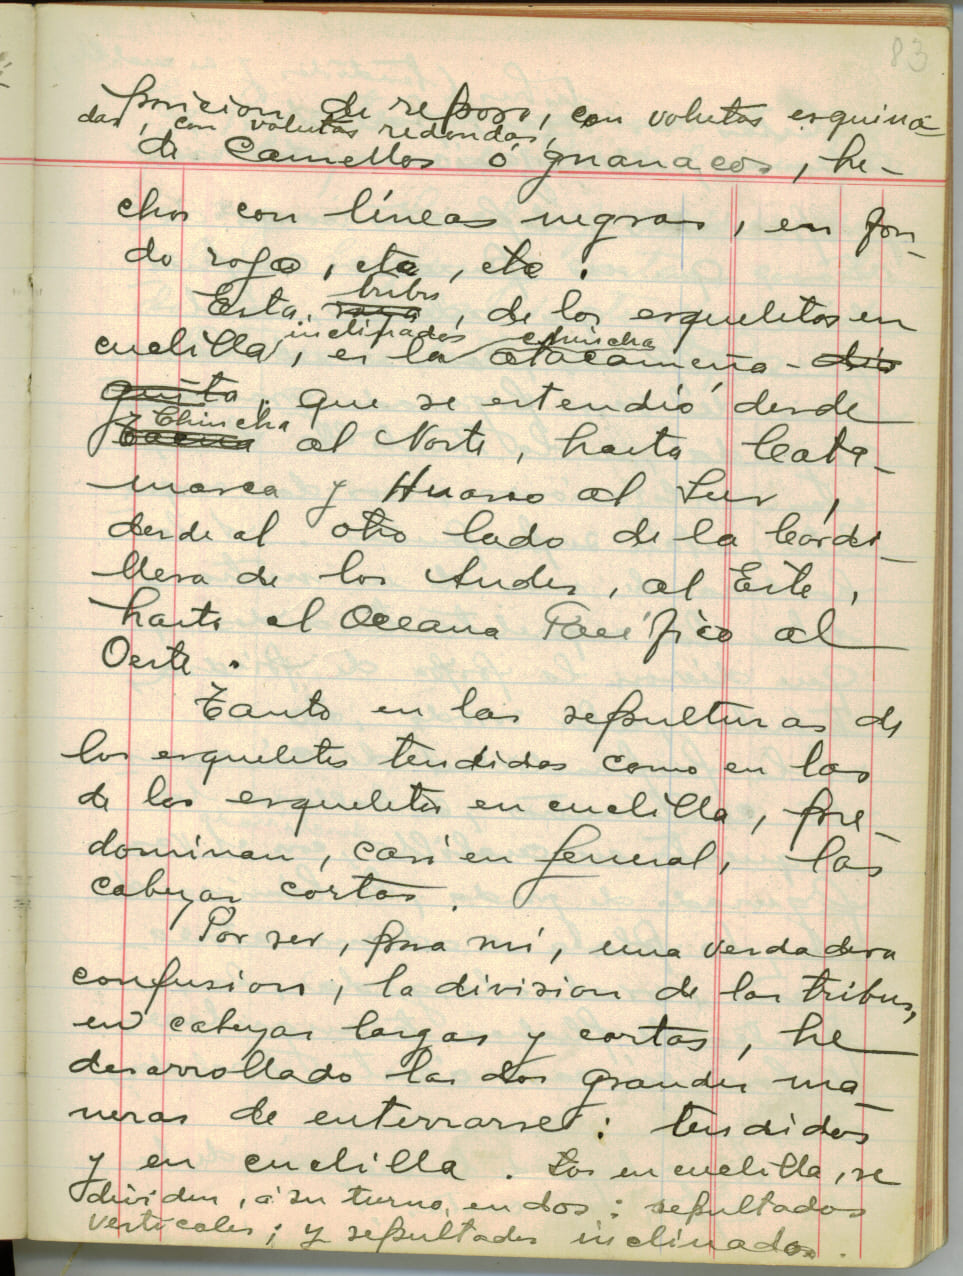 83
posicion de reposo, con volutas esquina-
das, con volutas redondas,
de Camellos ó guanacos, he-
chos con líneas negras, en fon-
do rojo, etc, etc.
tribu
Esta raza, de los esqueletos en
inclinados chincha
cuclilla, es la atacameña - dia
guita. que se estendió desde
Chincha
Tacna al Norte, hasta Cata-
marca y Huasco al Sur,
desde el otro lado de la Cordi-
llera de los Andes, al Este,
hasta el Oceano Pacífico al
Oeste.
Tanto en las sepulturas de
los esqueletos tendidos como en las
de los esqueletos en cuclilla, pre-
dominan, casi en general, las
cabezas cortas.
Por ser, para mí, una verdadera
confusion, la division de las tribus,
en cabezas largas y cortas, he
desarrollado las dos grandes ma-
neras de enterrarse: tendidos
y en cuclilla. Los en cuclilla, se
dividen, á su turno, en dos: sepultados
verticales; y sepultados inclinados.